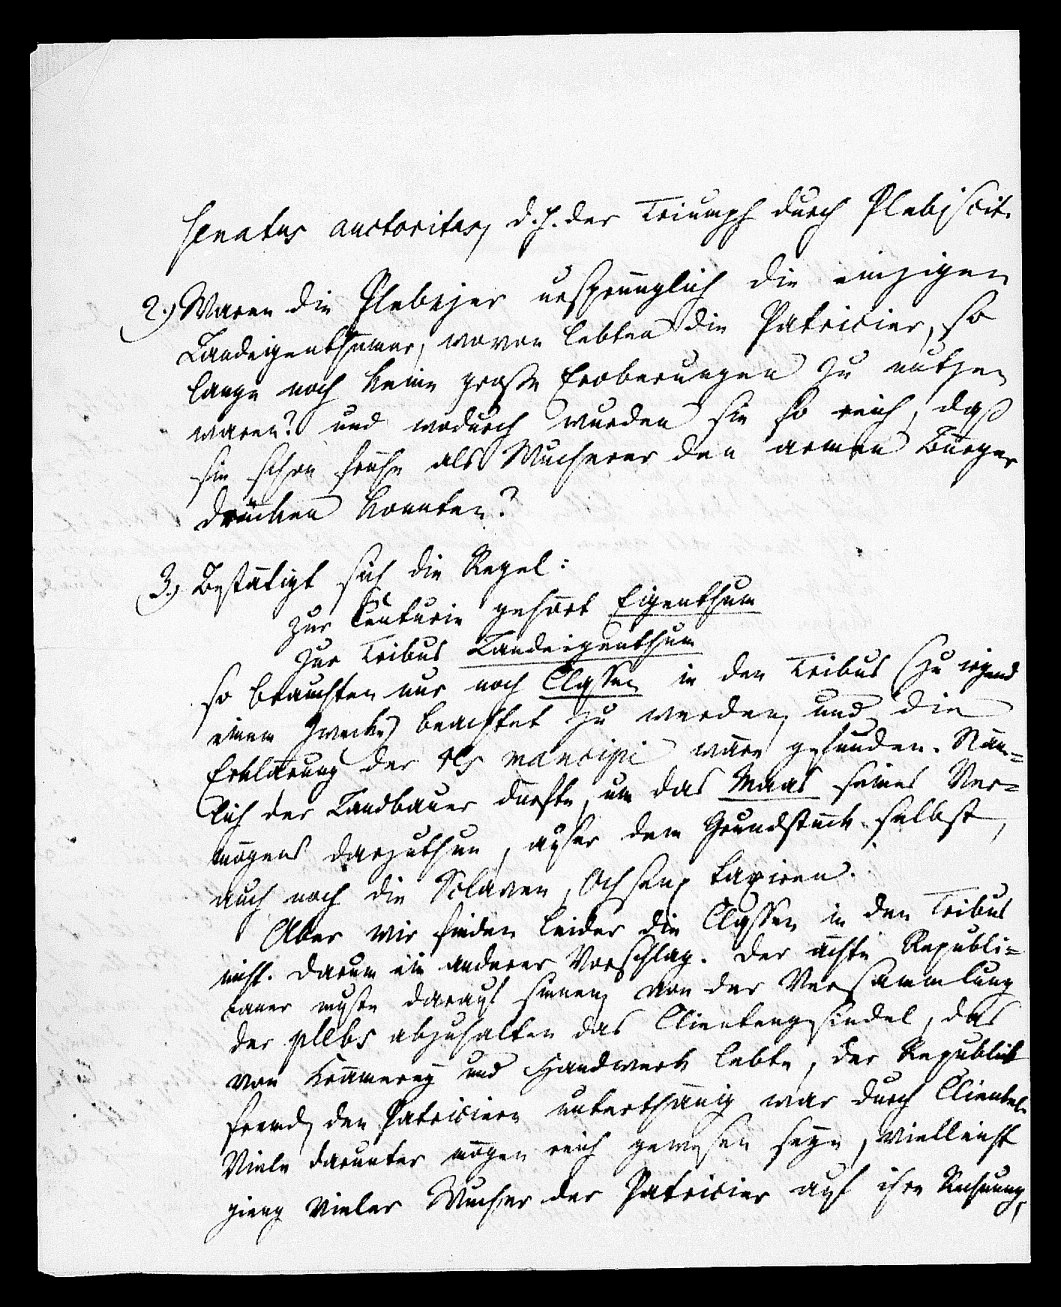 senatus auctoritas, d. h. der Triumph durch Plebiscit.
2.) Waren die Plebejer ursprünglich die einzigen
Landeigenthümer, wovon lebten die Patricier, so
lange noch keine große Eroberungen zu nutzen
waren? und wodurch wurden sie so reich, daß
sie schon frühe als Wucherer den armen Bürger
drücken konnten?
3.) Bestätigt sich die Regel:
zur Centurie gehört Eigenthum
zur Tribus Landeigenthum
so brauchten nur noch Classen in den Tribus (zu irgend
einem Zwecke) beachtet zu werden, und die
Erklärung der res mancipi wäre gefunden. Näm-
lich der Landbauer durfte, um das Maas seines Ver-
mögens darzuthun, außer dem Grundstück selbst,
auch noch die Sclaven, Ochsen taxiren.
Aber wir finden leider die Classen in den Tribus
nicht. Darum ein anderer Vorschlag. Der ächte Republi-
caner mußte darauf sinnen, von der Versammlung
der plebs abzuhalten das Clientengesindel, das
von Krämerey und Handwerk lebte, der Republik
fremd, den Patriciern unterthänig war durch Clientel.
Viele darunter mögen reich gewesen seyn, vielleicht
gieng vieler Wucher der Patricier auf ihre Rechnung,